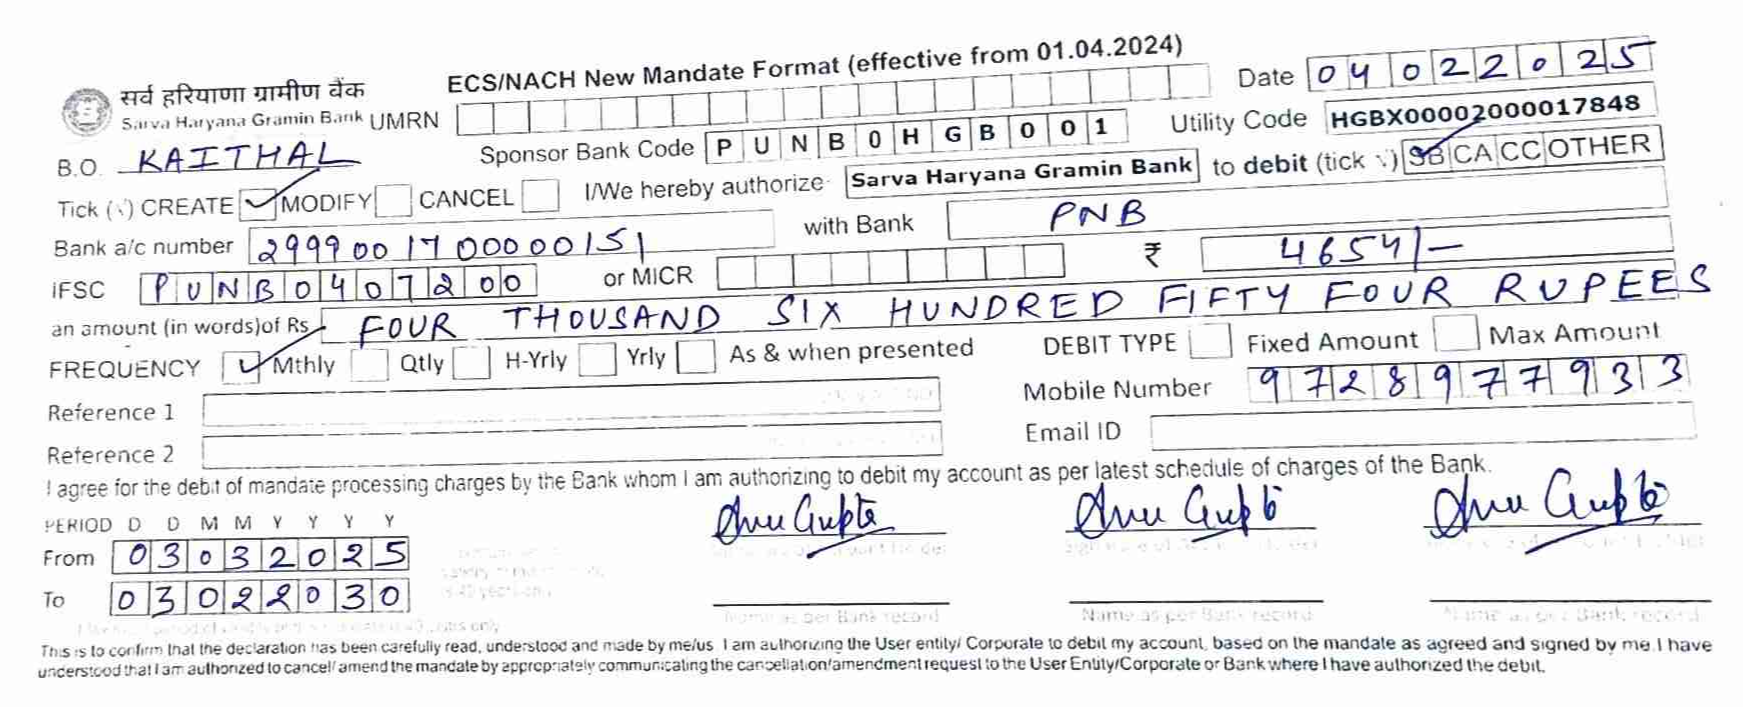 ECS/NACH New Mandate Format (effective from 01.04.2024)
सर्व हरियाणा ग्रामीण बैंक
Sarva Haryana Gramin Bank UMRN
Date 04022025
B.O. KAITHAL Sponsor Bank Code PUNB0HGB001 Utility Code HGBX00002000017848
Tick (√) CREATE ✓ MODIFY CANCEL I/We hereby authorize Sarva Haryana Gramin Bank to debit (tick √) SB CA CC OTHER
Bank a/c number 2999001700000151 with Bank PNB
IFSC PUNB0407200 or MICR ₹ 4654/-
an amount (in words)of Rs. FOUR THOUSAND SIX HUNDRED FIFTY FOUR RUPEES
FREQUENCY ✓ Mthly Qtly H-Yrly Yrly As & when presented DEBIT TYPE Fixed Amount Max Amount
Reference 1 Mobile Number 9728977933
Reference 2 Email ID
I agree for the debit of mandate processing charges by the Bank whom I am authorizing to debit my account as per latest schedule of charges of the Bank.
PERIOD D D M M Y Y Y Y
From 03032025
To 03022030
Name as per Bank record Name as per Bank record Name as per Bank record
This is to confirm that the declaration has been carefully read, understood and made by me/us I am authorizing the User entity/ Corporate to debit my account, based on the mandate as agreed and signed by me. I have
understood that I am authorized to cancel/ amend the mandate by appropriately communicating the cancellation/amendment request to the User Entity/Corporate or Bank where I have authorized the debit.